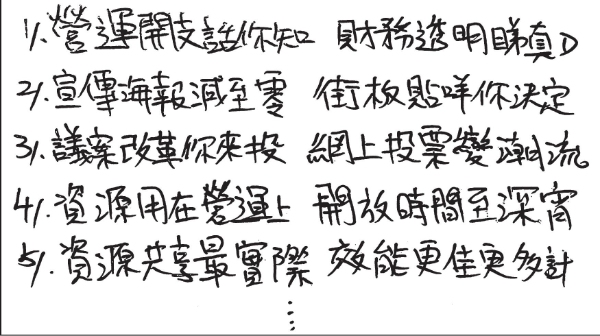 1/. 營運開支話你知 財務透明睇真D
2/. 宣傳海報減至零 街板貼咩你決定
3/. 議案改革你來投 網上投票變潮流
4/. 資源用在營運上 開放時間至深宵
5/. 資源共享最實際 效能更佳更多計
⋮